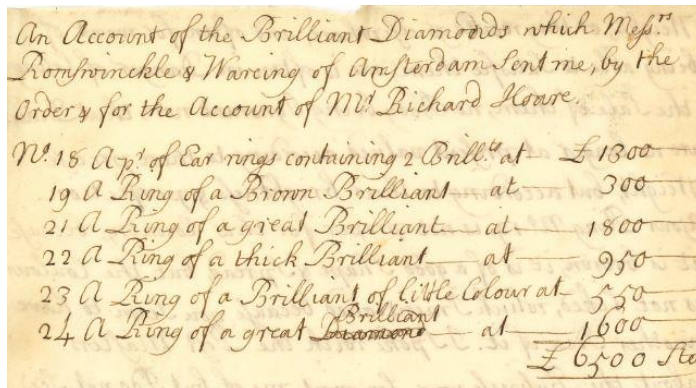 An Account of the Brilliant Diamonds which Messrs
Romswinckle & Warcing of Amsterdam Sent me, by the
Order & for the Account of Mr Richard Hoare.
No. 18 A pr. of Ear rings containing 2 Brillts at £ 1300
19 A Ring of a Brown Brilliant at 300
21 A Ring of a great Brilliant at 1800
22 A Ring of a thick Brilliant at 950
23 A Ring of a Brilliant of little Colour at 550
Brilliant
24 A Ring of a great Diamond at 1600
£ 6500 Ste